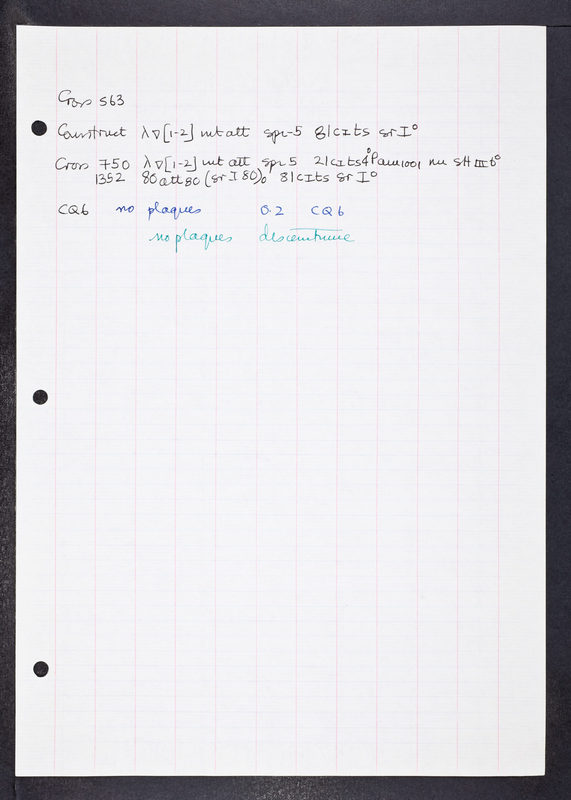 Cross 563
Construct λ∇[1-2] int att spi-5 21 cIts srI°
Cross 750 λ∇[1-2] int att spi 5 21 cIts Pam1001 nin sHIII6°
1352 80att80 (srI 80)° 21 cIts srI°
CQ6 no plaques 0.2 CQ6
no plaques discontinue